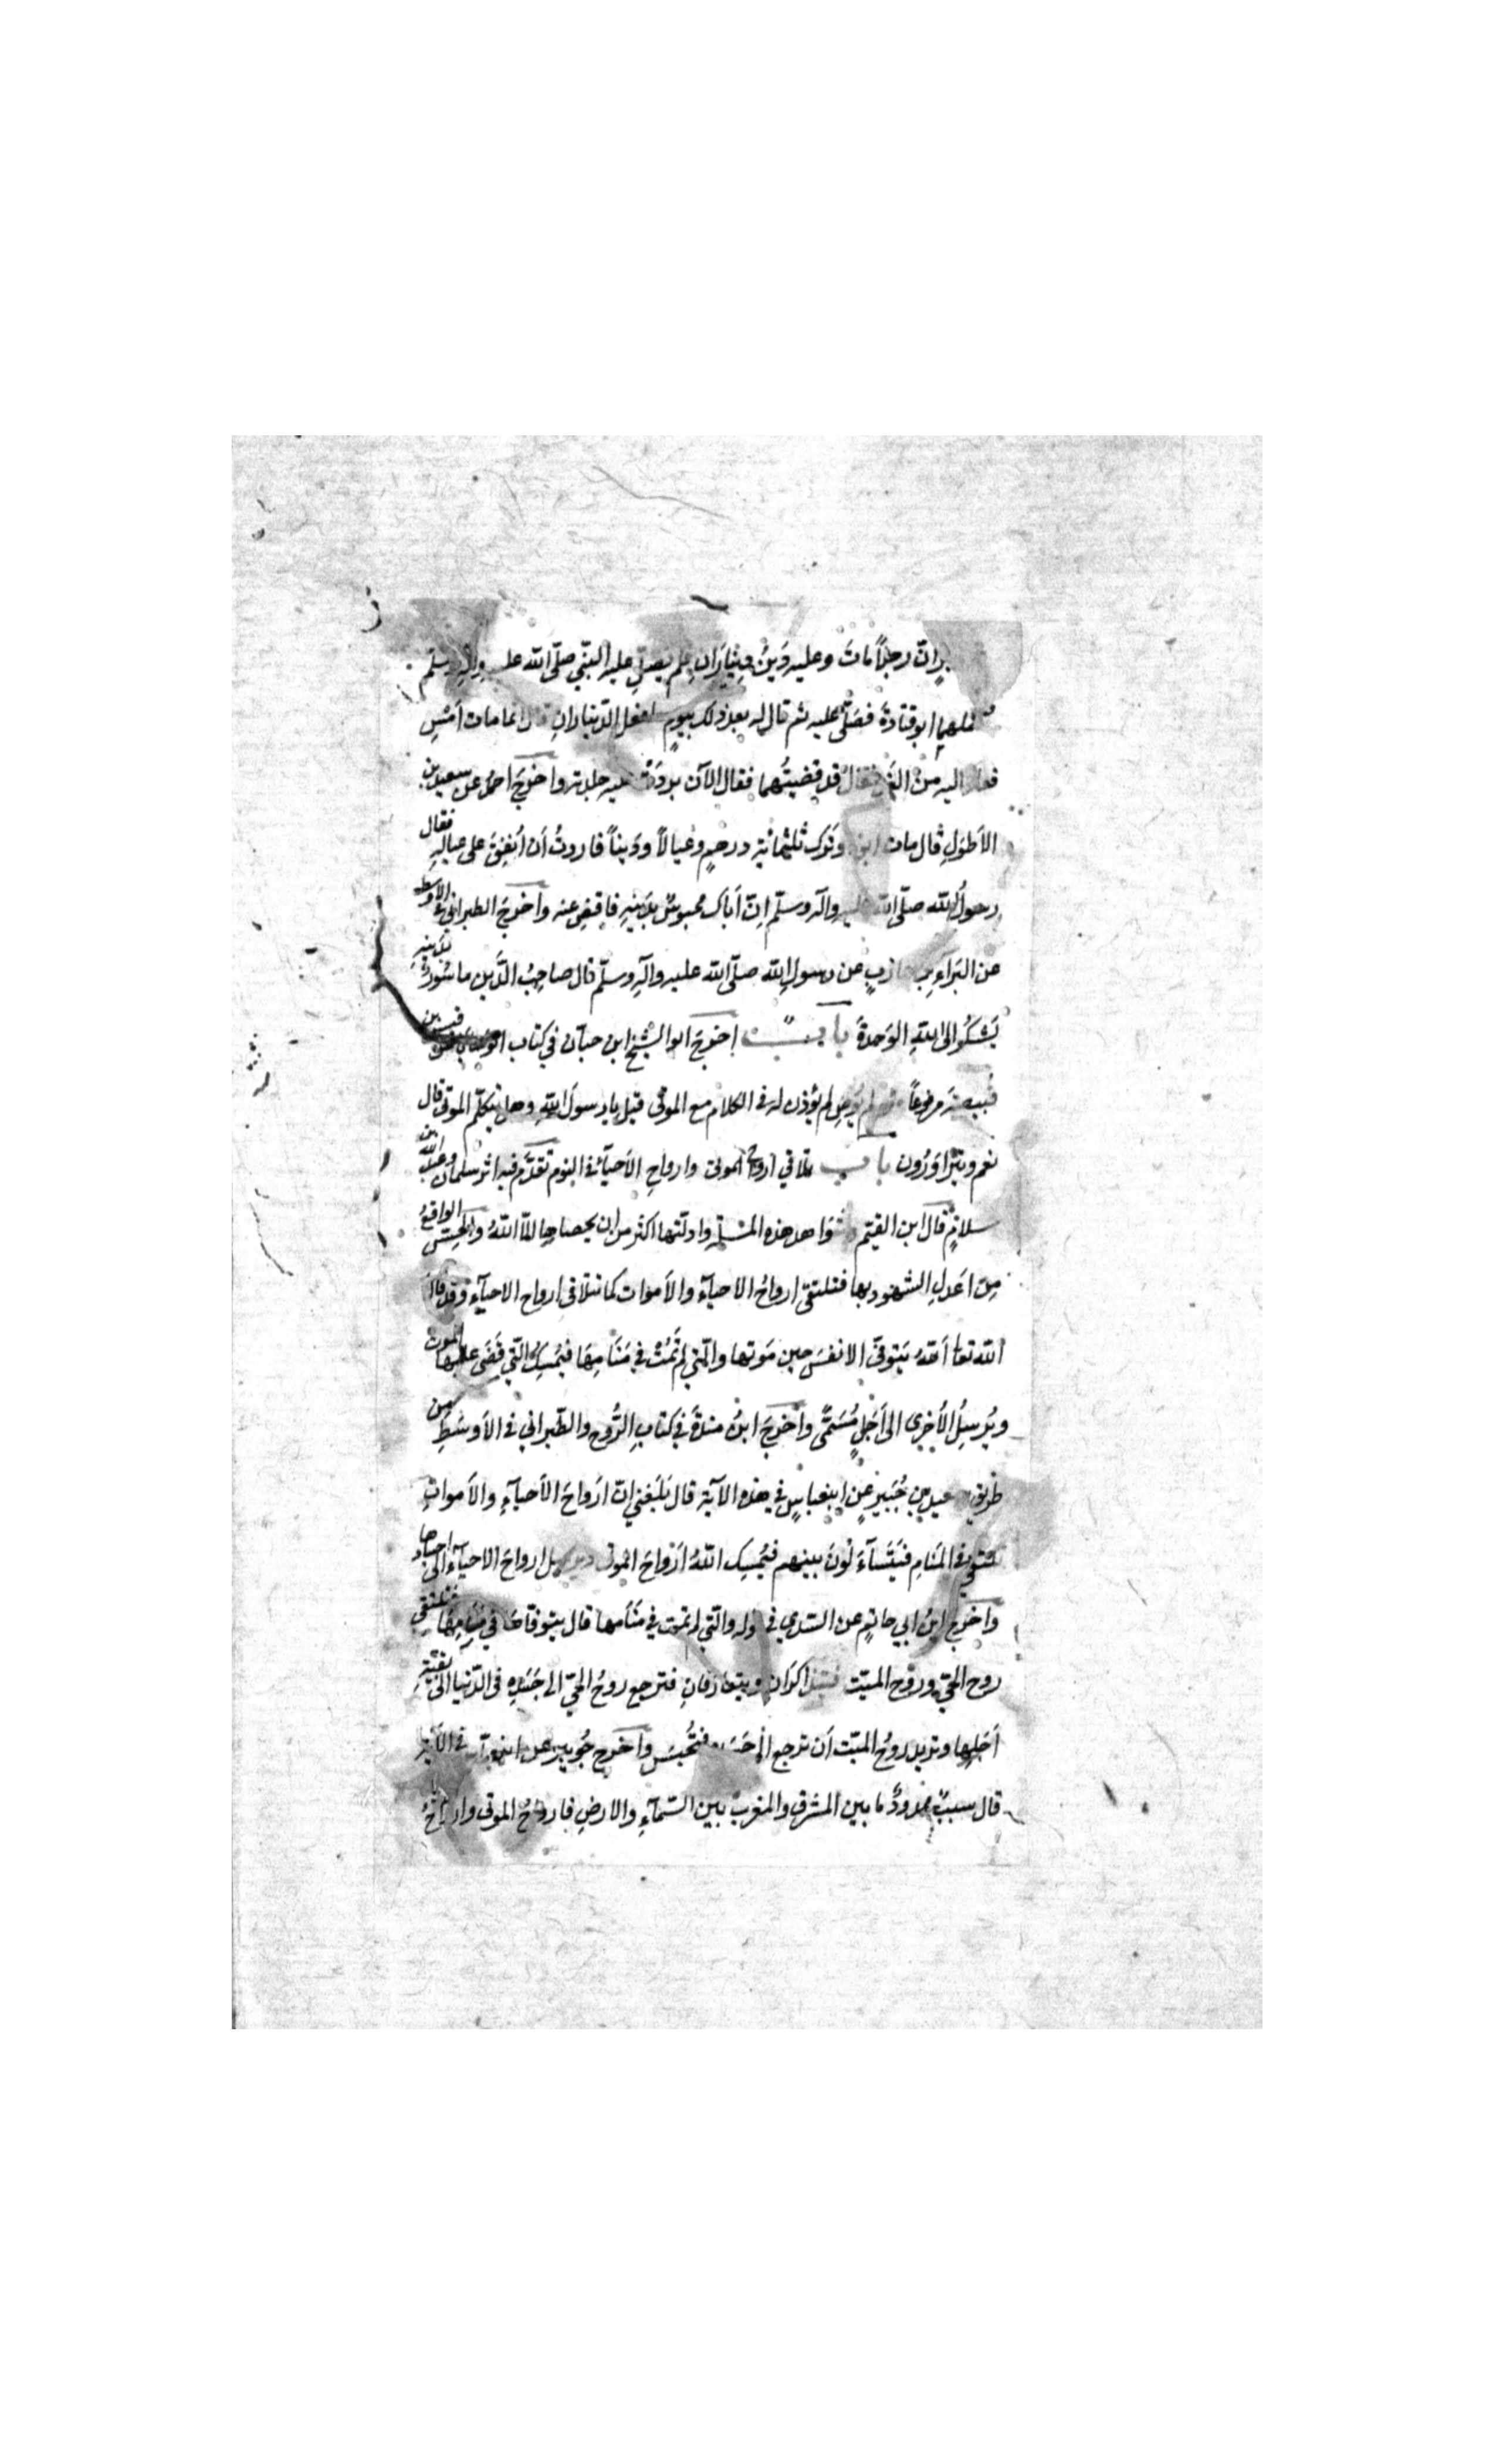 انّ رجلاً مَاتَ وعليه دَينٌ دِينَارَانِ فلم يصلِّ عليه النبّي صلّى الله عليه وآلِه وسلّم
ابو قتادةَ فصَلّى عليه ثم قال له بعد ذلك بيومٍ الدّينارانِ انما مات اَمْسِ
اليه مِنَ الغَدِ فقال قد قضيتُهما فقال الآن برّدَتْ عليه جلدته واخرَجَ احمدُ عن سعيد بن
الأطوَلِ قال مات وتَرَك ثلثمائةِ درهمٍ وعيالاً ودَيناً فاردتُ اَن اُنفِقَ على عياله فقال
رسولُ الله صلّى الله عليه وآله وسلّم انّ اَباك محبوسٌ بِدَينِهِ فاقضِ عنه واخرَجَ الطبراني في الاوسط
عن البَرَآءِ بن عازبٍ عن رسولِ الله صلّى الله عليه وآلِهِ وسلّم قال صاحِبُ الدَّينِ ماسُورٌ بدَينِهِ
يَشكُو الى اللهِ الوَحدةَ باب اخرَجَ ابو الشيخ ابن حبّان في كتاب الوَصَايا قيس بن
قُبيصةَ مرفوعاً لم يُوصِ لم يُؤذن له في الكلامِ مع الموتى قيل يا رسولَ اللهِ وهل يتكلّم الموتى قال
نعم ويتَزاوَرُون باب تلاقي اَرواح الموتى وارواحِ الاَحيآء في النوم تقدَّم فيه اثر سلمان وعبد الله بن
سلامٍ قال ابن القيّم شواهد هذه المسئلة وادلّتها اكثر من ان يحصاها الّا اللهُ والحِسّ الواقعُ
مِن اَعدلِ الشهودِ بها فتلتقى ارواحُ الاحيآءِ والاَموات كما تتلاقى ارواح الاحيآءِ وقد قال
الله تعا اَللهُ يَتوفّى الانفسَ حين مَوتها والّتي لم تَمُتْ في مَنَامِهَا فيُمسِكُ الّتي قَضَى عليها الموتَ
ويُرسِلُ الأخرى الى اَجَلٍ مُسَمّىً واخرَجَ ابنُ مندةَ في كتابِ الرُّوح والطّبراني في الاَوسَطِ من
طريق سعيد بن جُبَيرٍ عن ابن عباسٍ في هذه الآية قال بَلَغني انّ اَرواحَ الاَحيآءِ والاَمواتِ
تلتقى في المَنَامِ فيَتَسآءَلُونَ بينهم فيُمسِك اللهُ اَرْواحَ الموتى ويرسل ارواحَ الاحيآءِ الى اجسادها
واخرَج ابنُ ابي حاتِمٍ عن السّدي في قوله والّتي لم تمت في مَنَامِها قال يتوفّاهَا في مَنَامِهَا فتلتقي
روح الحيّ وروْح الميّت فيتذاكرَان ويتعارَفانِ فترجع روحُ الحيّ الى جَسَدِه في الدّنيا الى بقيّةِ
اَجَلِها وتريد روحُ الميّت اَن ترجع الى جسده فتُحبَسَ واخرَج جُويبر عن ابن عباس في الآية
قال سببٌ ممدودٌ ما بين المشرقِ والمغربِ بين السّمآءِ والارضِ فارواحُ الموتى وارواحُ